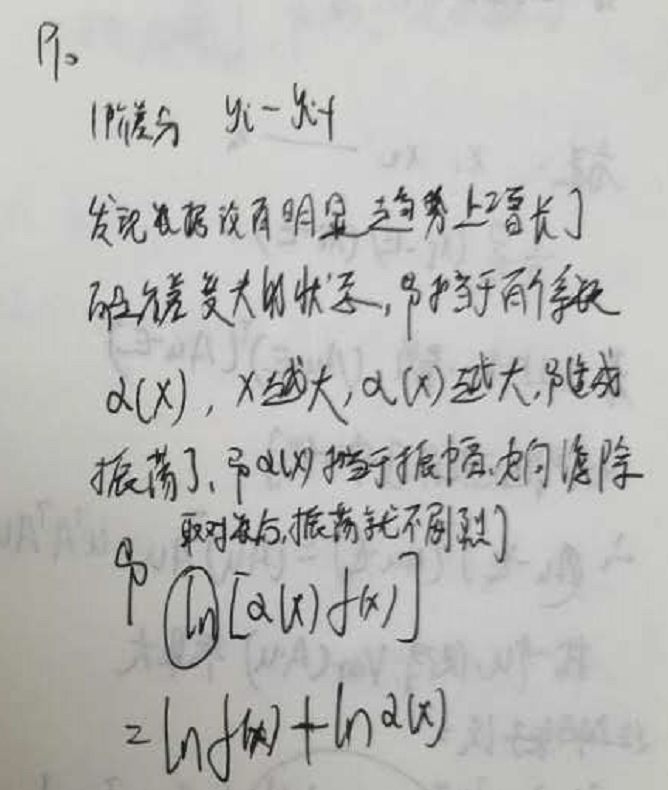 P10
1阶差分 yi - yi-1
发现数据没有明显趋势上增长了
而且方差变大的状态,即相当于有个系数
α(x),x越大,α(x)越大,即造成
振荡了,即α(x)相当于振幅,如何消除
取对数后,振荡就不剧烈了
即 ln[α(x)f(x)]
=lnf(x)+lnα(x)